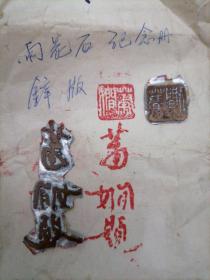 雨花石 纪念册
锌版
蕭嫻題